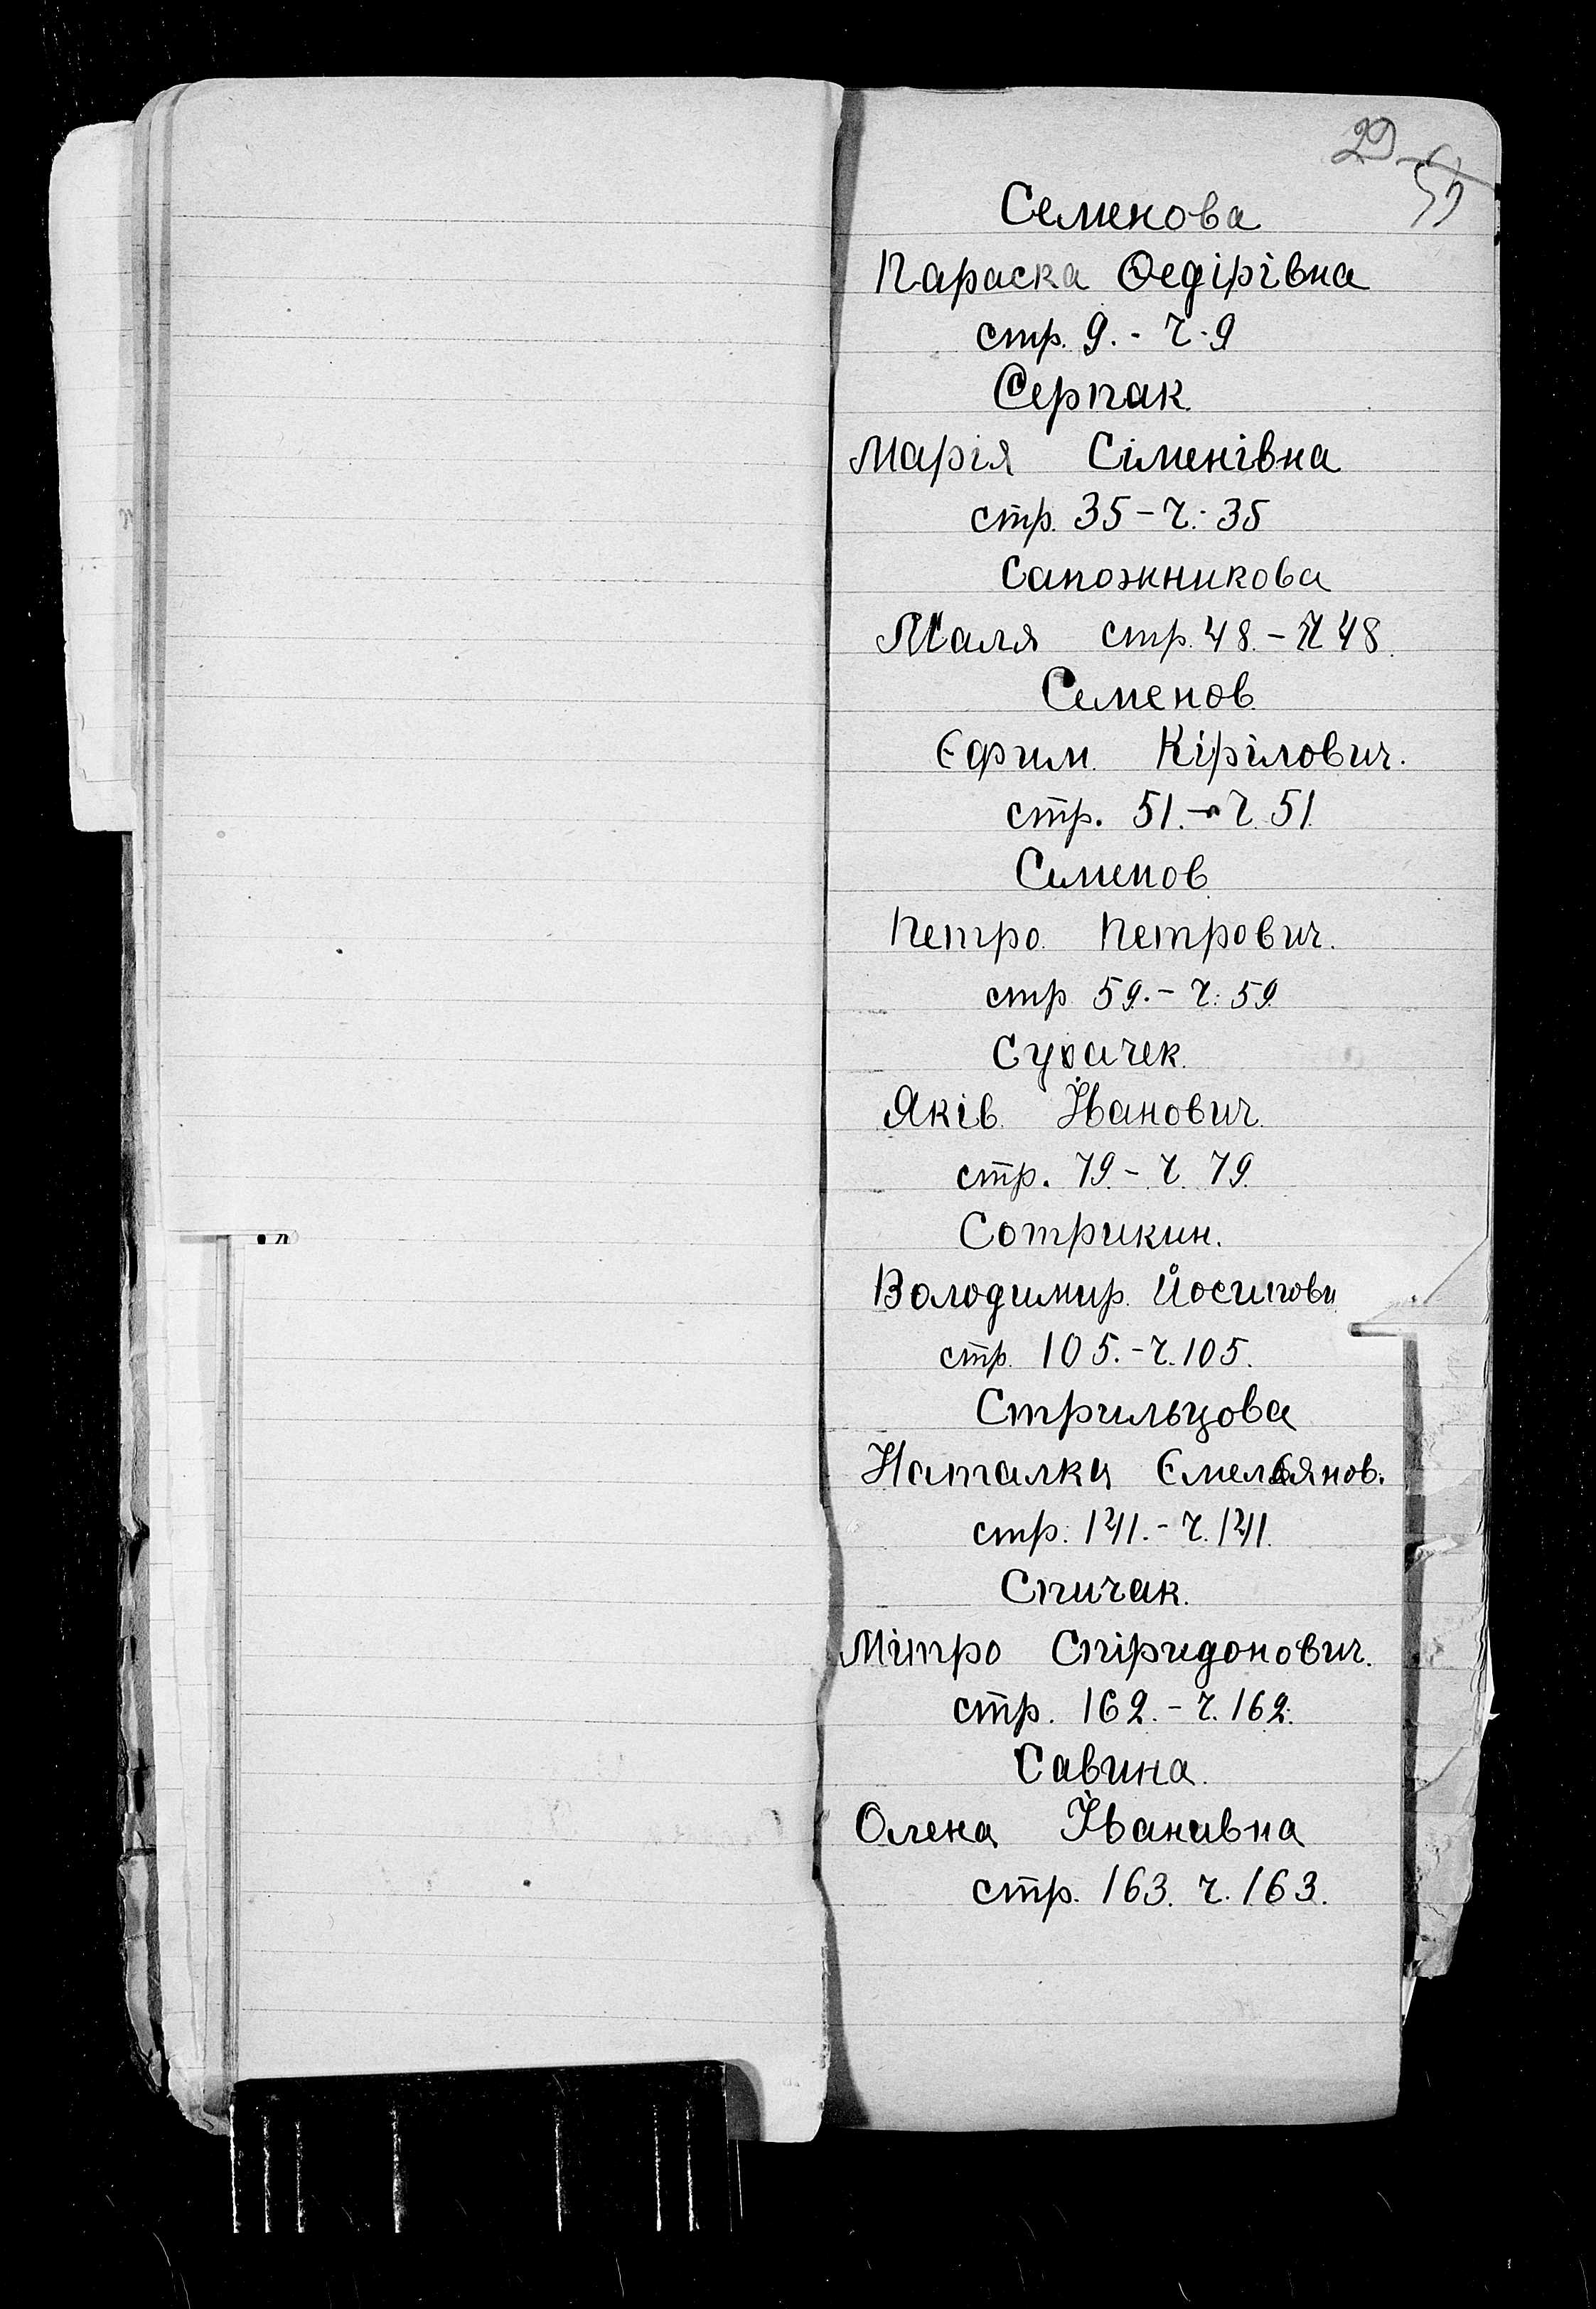 29
Семенова
Параска Ѳедірівна
стр. 9. - Ч. 9
Серпак.
Марія Сіменівна
стр. 35 - ч. 35
Сапожникова
Маля стр. 48. - Ч 48.
Семенов.
Єфим Кірілович.
стр. 51. - ч. 51.
Семенов
Петро Петрович.
стр 59. - ч. 59.
Сухачек.
Яків Іванович.
стр. 79 - ч. 79.
Сотрикин.
Володимир Йосипови
стр. 105. - ч. 105.
Стрильцова
Наталка Ємельянов.
стр. 141. - ч. 141.
Спичак.
Мітро Спіридонович.
стр. 162. - ч. 162.
Савина.
Олена Іванивна
стр. 163. ч. 163.